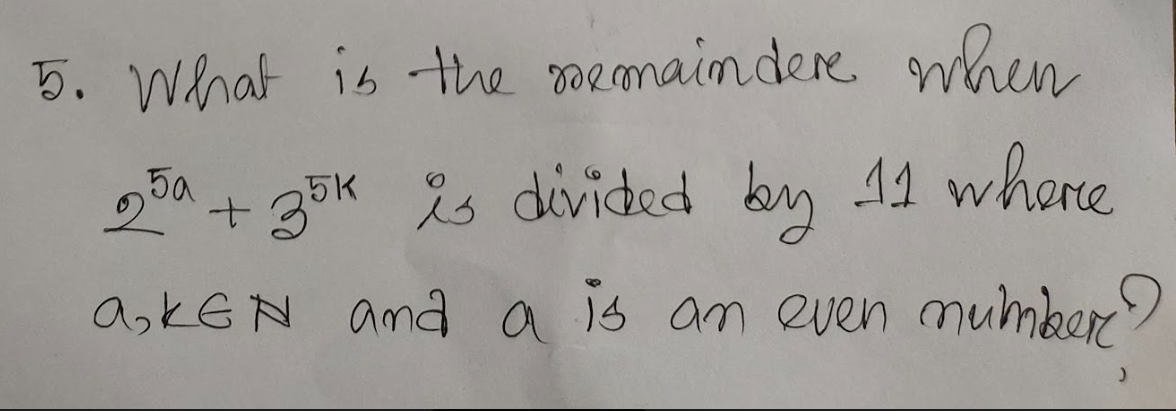 5. What is the remainder when
2^{5a} + 3^{5k} is divided by 11 where
a,k∈ℕ and a is an even number?